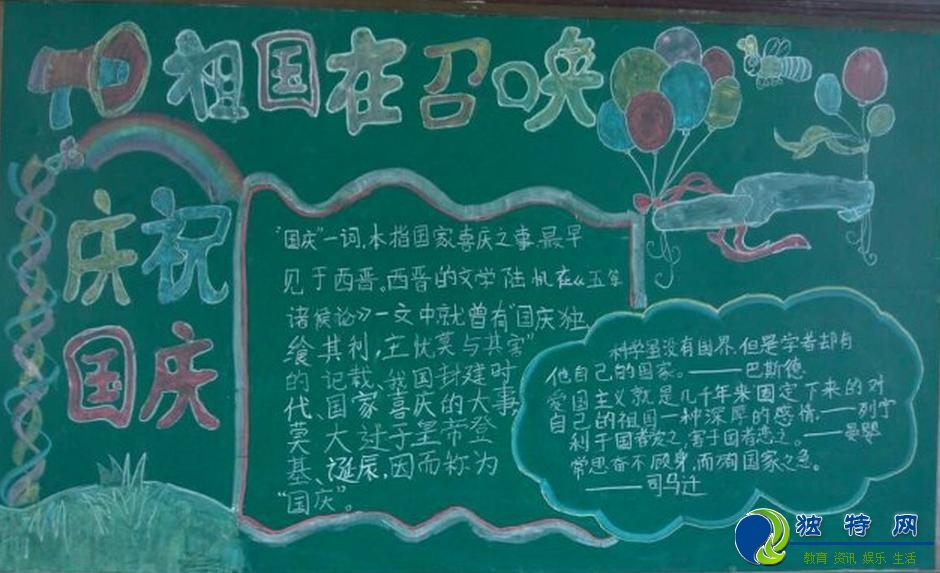 祖国在召唤
庆祝
国庆
"国庆"一词,本指国家喜庆之事最早
见于西晋。西晋的文学陆机在《五等
诸侯论》一文中就曾有"国庆独
飨其利,主忧莫与其害"
的记载、我国封建时
代、国家喜庆的大事,
莫大过于皇帝登
基、诞辰,因而称为
"国庆"。
科学虽没有国界,但是学者却有
他自己的国家。——巴斯德
爱国主义就是几千年来固定下来的对
自己的祖国一种深厚的感情。——列宁
利于国者爱之,害于国者恶之。——晏婴
常思奋不顾身,而殉国家之急。
——司马迁
独特网
教育 资讯 娱乐 生活